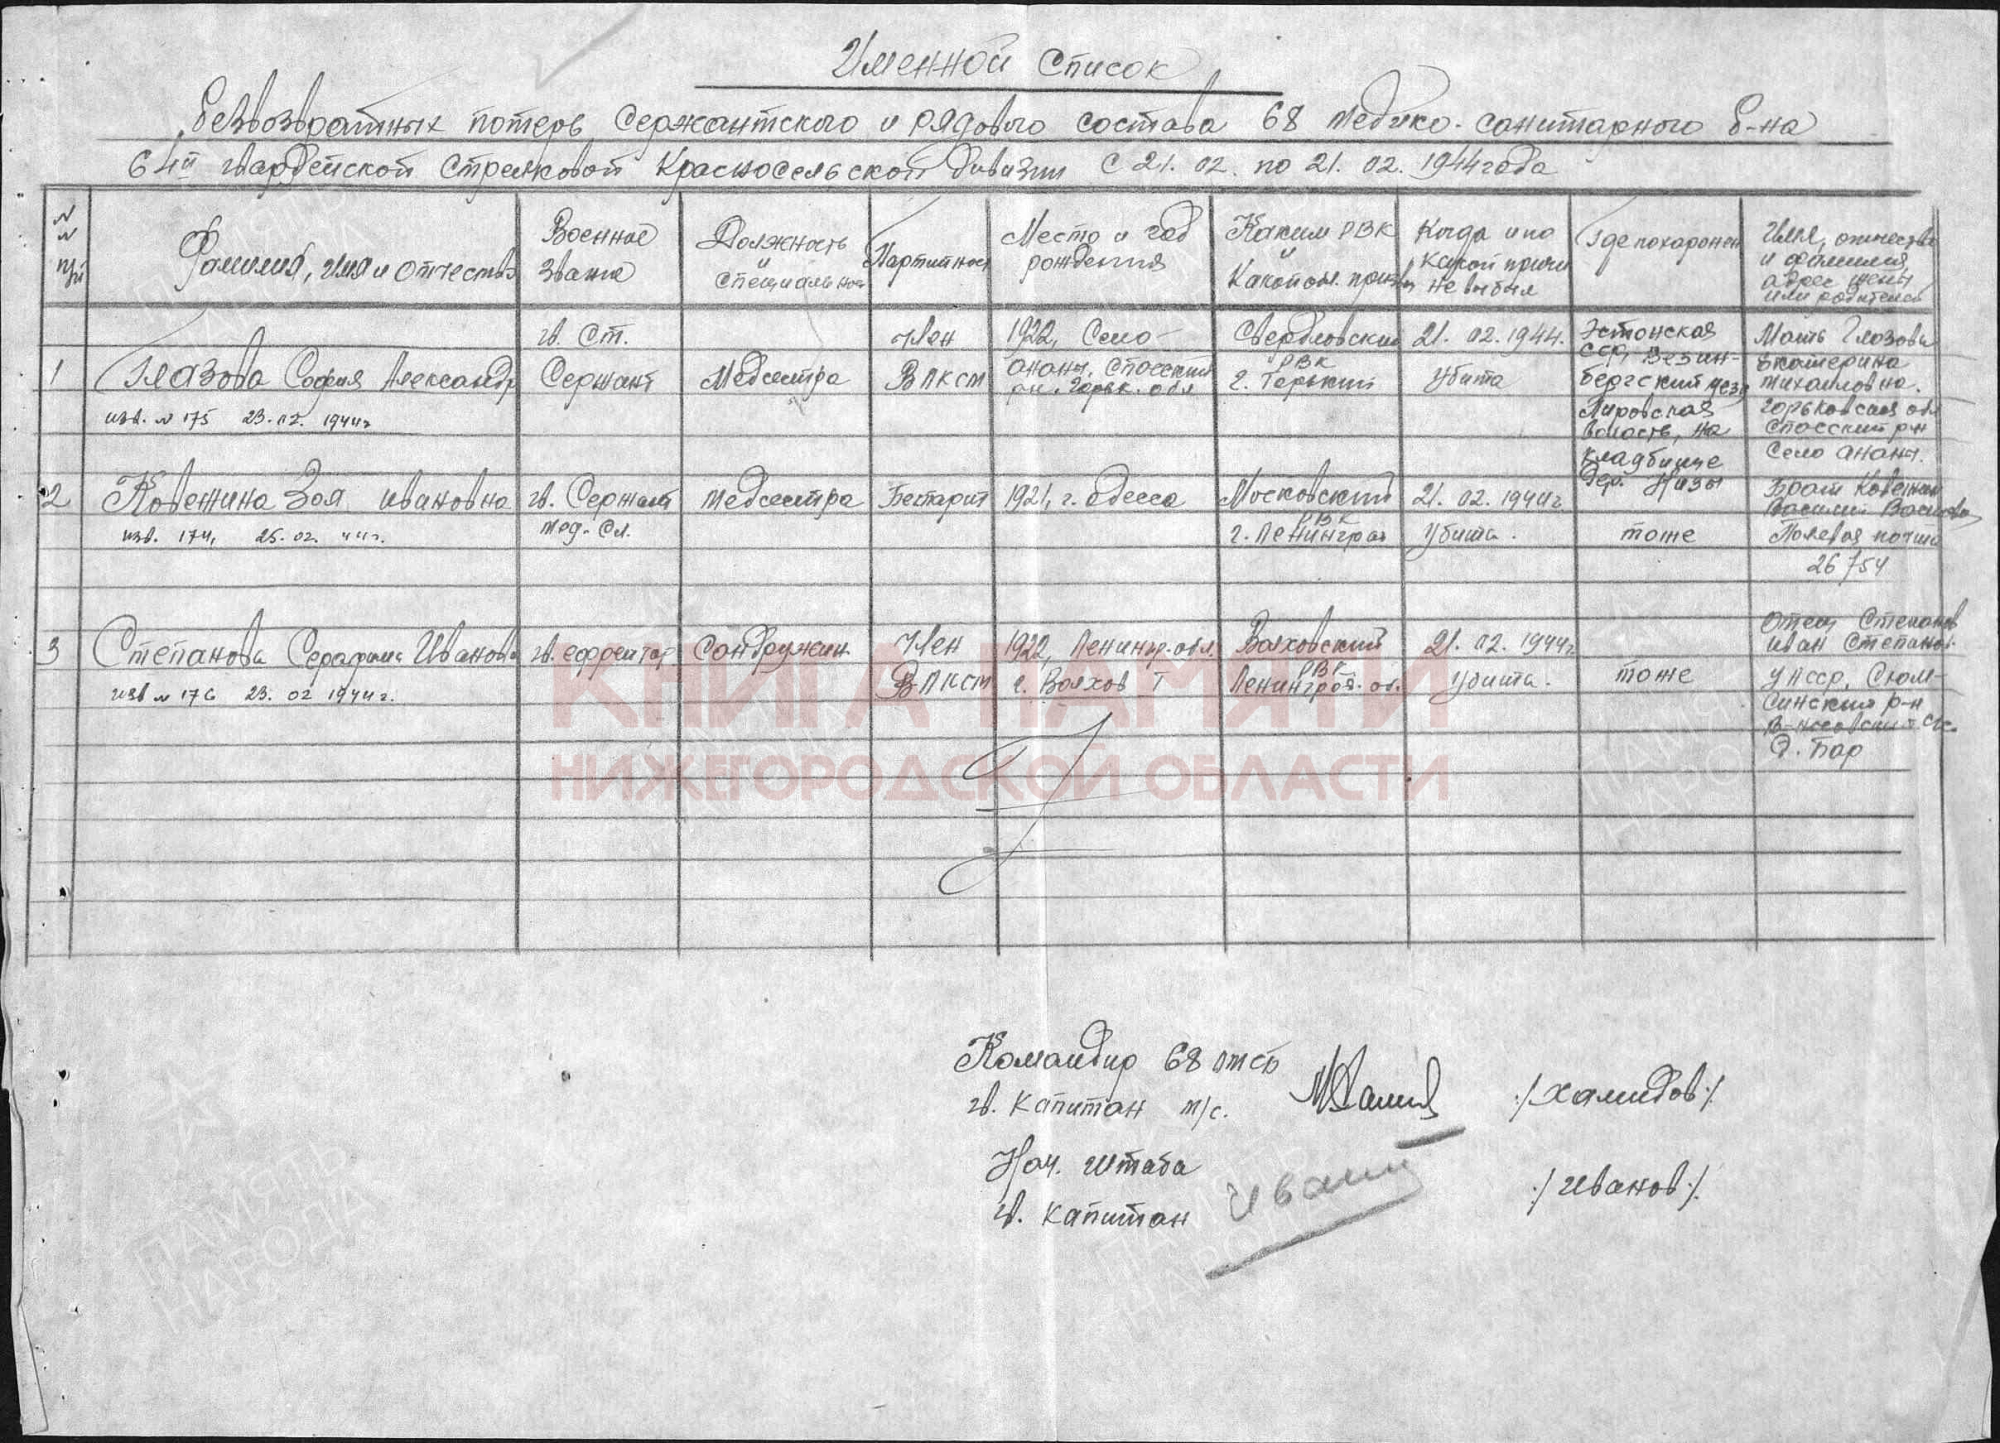 Именной список
безвозвратных потерь сержантского и рядового состава 68 медико-санитарного б-на
64й гвардейской стрелковой Красносельской дивизии с 21.02. по 21.02.1944 года
Фамилия, имя и отчество
Военное звание
Должность и специальнос
Партийност
Место и год рождения
Каким РВК и какой обл. призван
Когда и по какой причине выбыл
Где похоронен
Имя, отчество и фамилия, адрес жены или родителей
1
Глазова София Александр
изв. № 175 23.02. 1944г
гв. Ст. Сержант
Медсестра
Член ВЛКСМ
1922, Село Ананч, Спосский рн. Горьк. обл
Свердловский РВК г. Горький
21.02.1944. убита
Эстонская ССР, Везинбергский уезд, волость, на кладбище дер.
Мать Глазова Екатерина Михайловна.
Горьковская обл Спосский р-н Село Ананч.
2
Ковежина Зоя Ивановна
изв. 174, 25.02. 44г.
гв. Сержант мед. сл.
медсестра
Беспарт
1921, г. Одесса
Московский РВК г. Ленинград
21.02.1944г. Убита.
тоже
Брат Ковежин Василий
Полевая почта
26754
3
Степанова Серафима Ивановн
изв № 176 23.02 1944г.
гв. ефрейтор
Сандружин.
Член ВЛКСМ
1922, Ленингр. обл. г. Волхов I
Волховский РВК Ленинград. об.
21.02.1944г. убита.
тоже
Отец Степанов Иван Степанов.
УАССР, Сюмсинский р-н
д. Бар
КНИГА ПАМЯТИ
НИЖЕГОРОДСКОЙ ОБЛАСТИ
Командир 68 мсб
гв. капитан м/с. /Хамидов/
Нач. штаба
гв. капитан Иванов /Иванов/
ПАМЯТЬ
НАРОДА